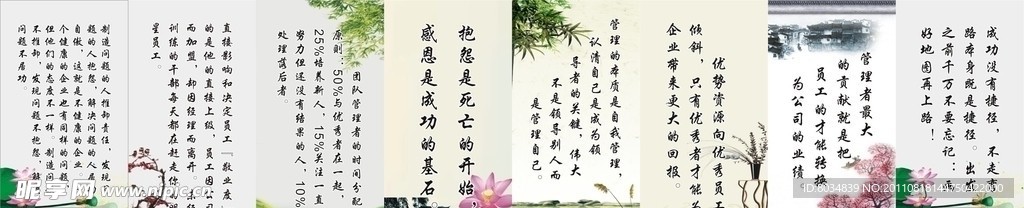 制造问题的人推卸责任，
题的人抱怨，解决问题的人居
自傲，这就是不健康的企业
个健康的企业也有同样的问题
但他们的态度不一样。制造问题
不推卸，发现问题不抱怨，解
问题不居功
直接影响和决定员工『敬业度
的是他的直接上级，员工因公司
而加盟，却因经理而离 未经
训练的干部每天都在赶走你的明
星员工。
团队管理者的时间分配
原则：50%与优秀者在一起，
25%培养新人，15%关注一直
努力但还没有结果的人，10%
处理落后者
抱怨是死亡的开始，
感恩是成功的基石
管理的本质是自我管理，
认清自己是成为领
导者的关键，伟大
不是领导别人而
是管理自己。
优势资源向优秀员工
倾斜，只有优秀者才能为
企业带来更大的回报。
管理者最大
的贡献就是把
员工的才能转换
为公司的业绩
成功没有捷径，不是走
路本身既是捷径。出发
之前千万不要忘记：
好地图再上路！
昵享网 www.nipic.cn
ID:8034839 NO:20110818144750422000